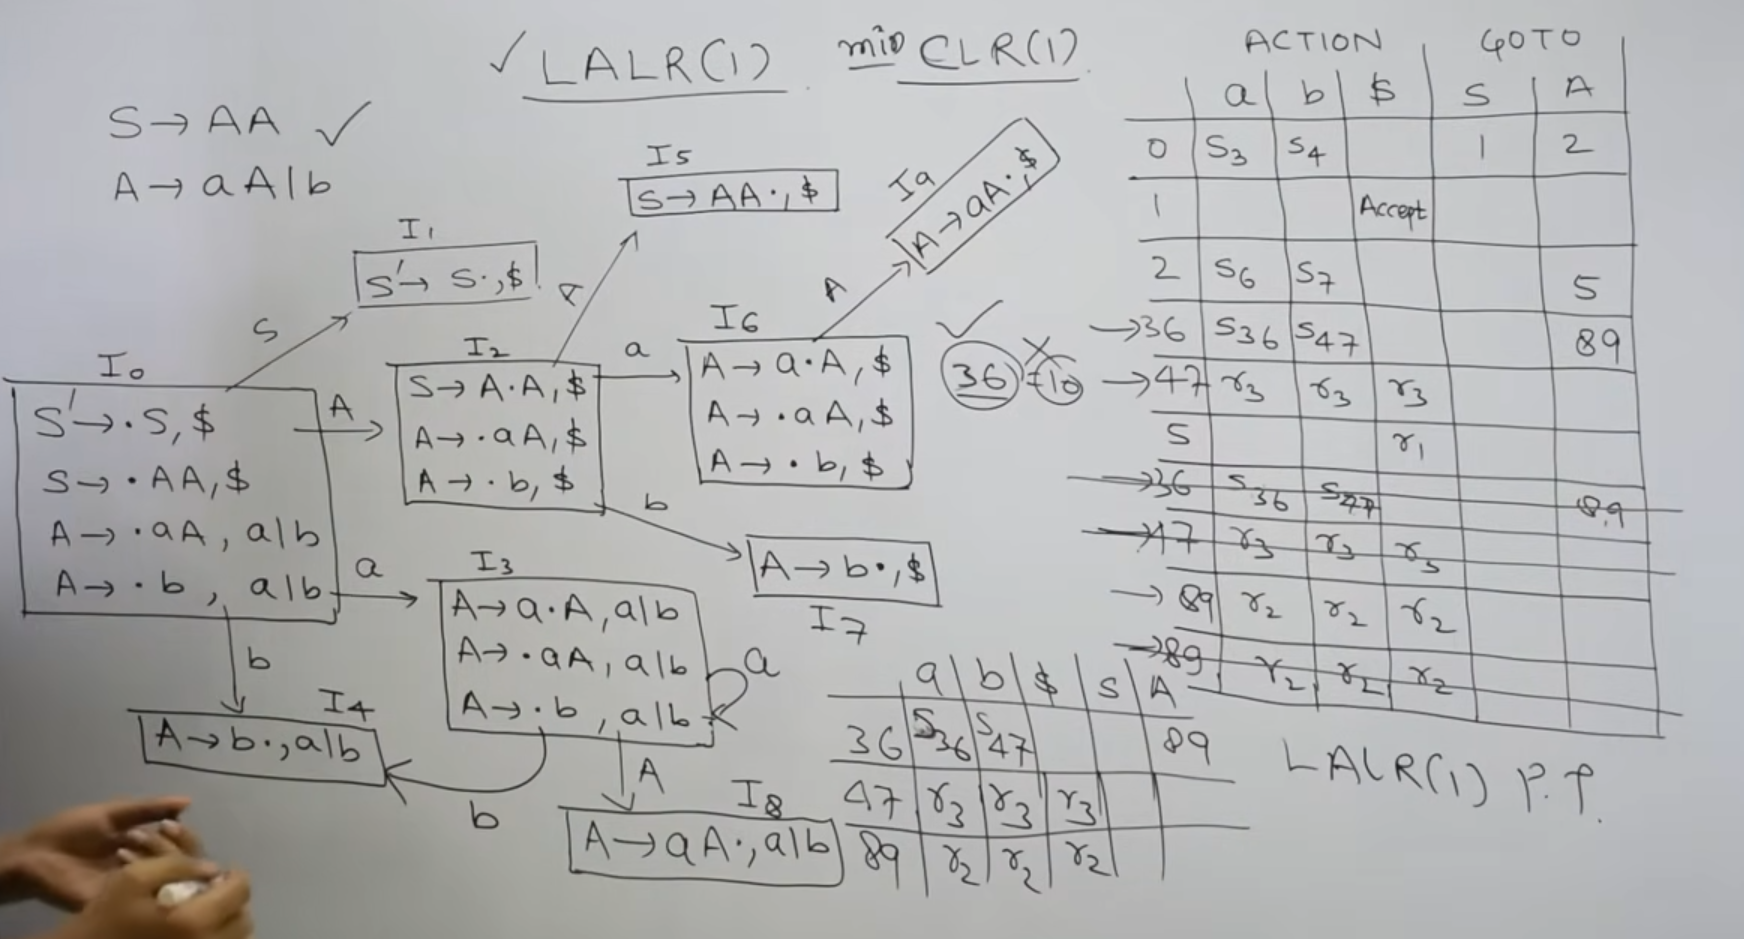 ✓ LALR(1) min CLR(1)
S → AA ✓
A → aA|b
I0
S' → ·S, $
S → ·AA, $
A → ·aA, a|b
A → ·b, a|b
S
A
a
b
I1
S' → S·, $
I2
S → A·A, $
A → ·aA, $
A → ·b, $
A
a
b
I5
S → AA·, $
I6
A → a·A, $
A → ·aA, $
A → ·b, $
A
I9
A → aA·, $
✓
36
I10
A → b·, $
I7
I3
A → a·A, a|b
A → ·aA, a|b
A → ·b, a|b
a
b
A
I4
A → b·, a|b
I8
A → aA·, a|b
ACTION GOTO
a b $ S A
0 S3 S4 1 2
1 Accept
2 S6 S7 5
→36 S36 S47 89
→47 r3 r3 r3
5 r1
→36 S36 S47 89
→47 r3 r3 r3
→89 r2 r2 r2
→89 r2 r2 r2
a b $ S A
36 S36 S47 89
47 r3 r3 r3
89 r2 r2 r2
LALR(1) P.T.